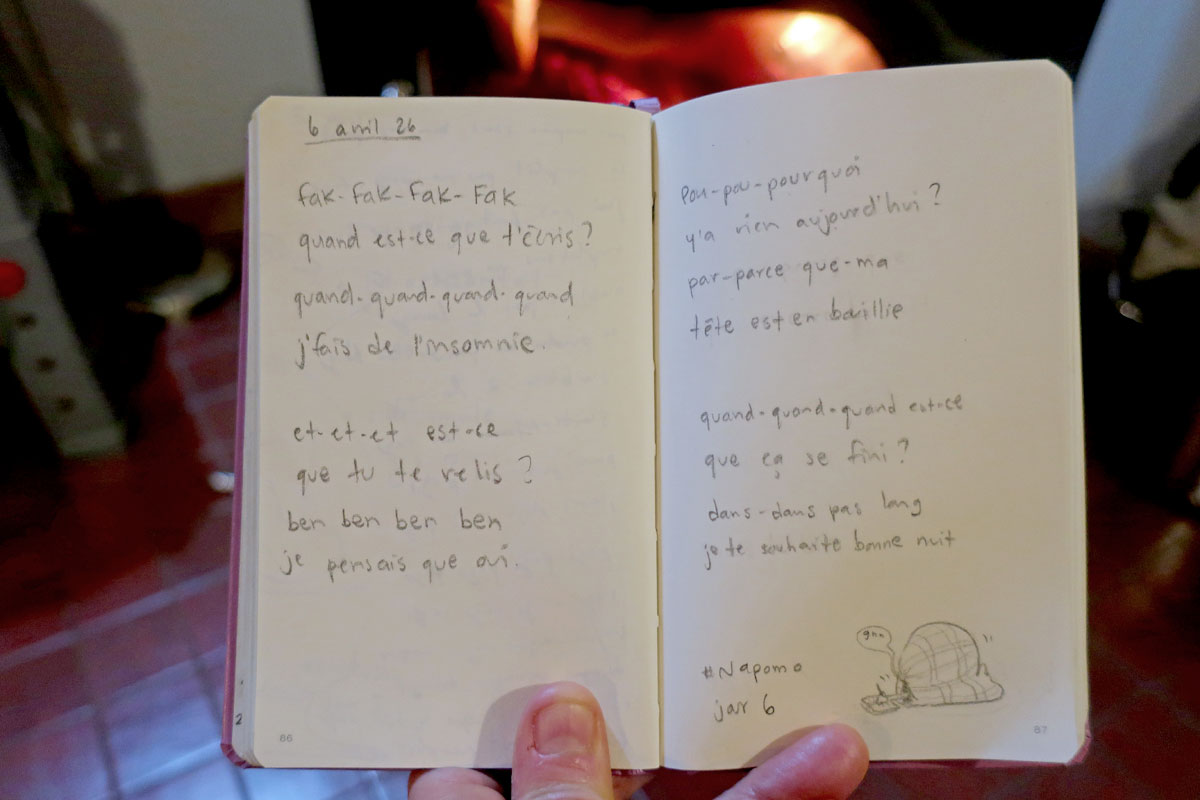 6 avril 26
Fak-Fak-Fak-Fak
quand est-ce que t'écris?
quand-quand-quand-quand
j'fais de l'insomnie.
et-et-et est-ce
que tu te relis?
ben ben ben ben
je pensais que oui.
2
86
Pou-pou-pourquoi
y'a rien aujourd'hui?
par-parce que-ma
tête est en bouillie
quand-quand-quand est-ce
que ça se fini?
dans-dans pas long
je te souhaite bonne nuit
gnn
#Napomo
jar 6
87